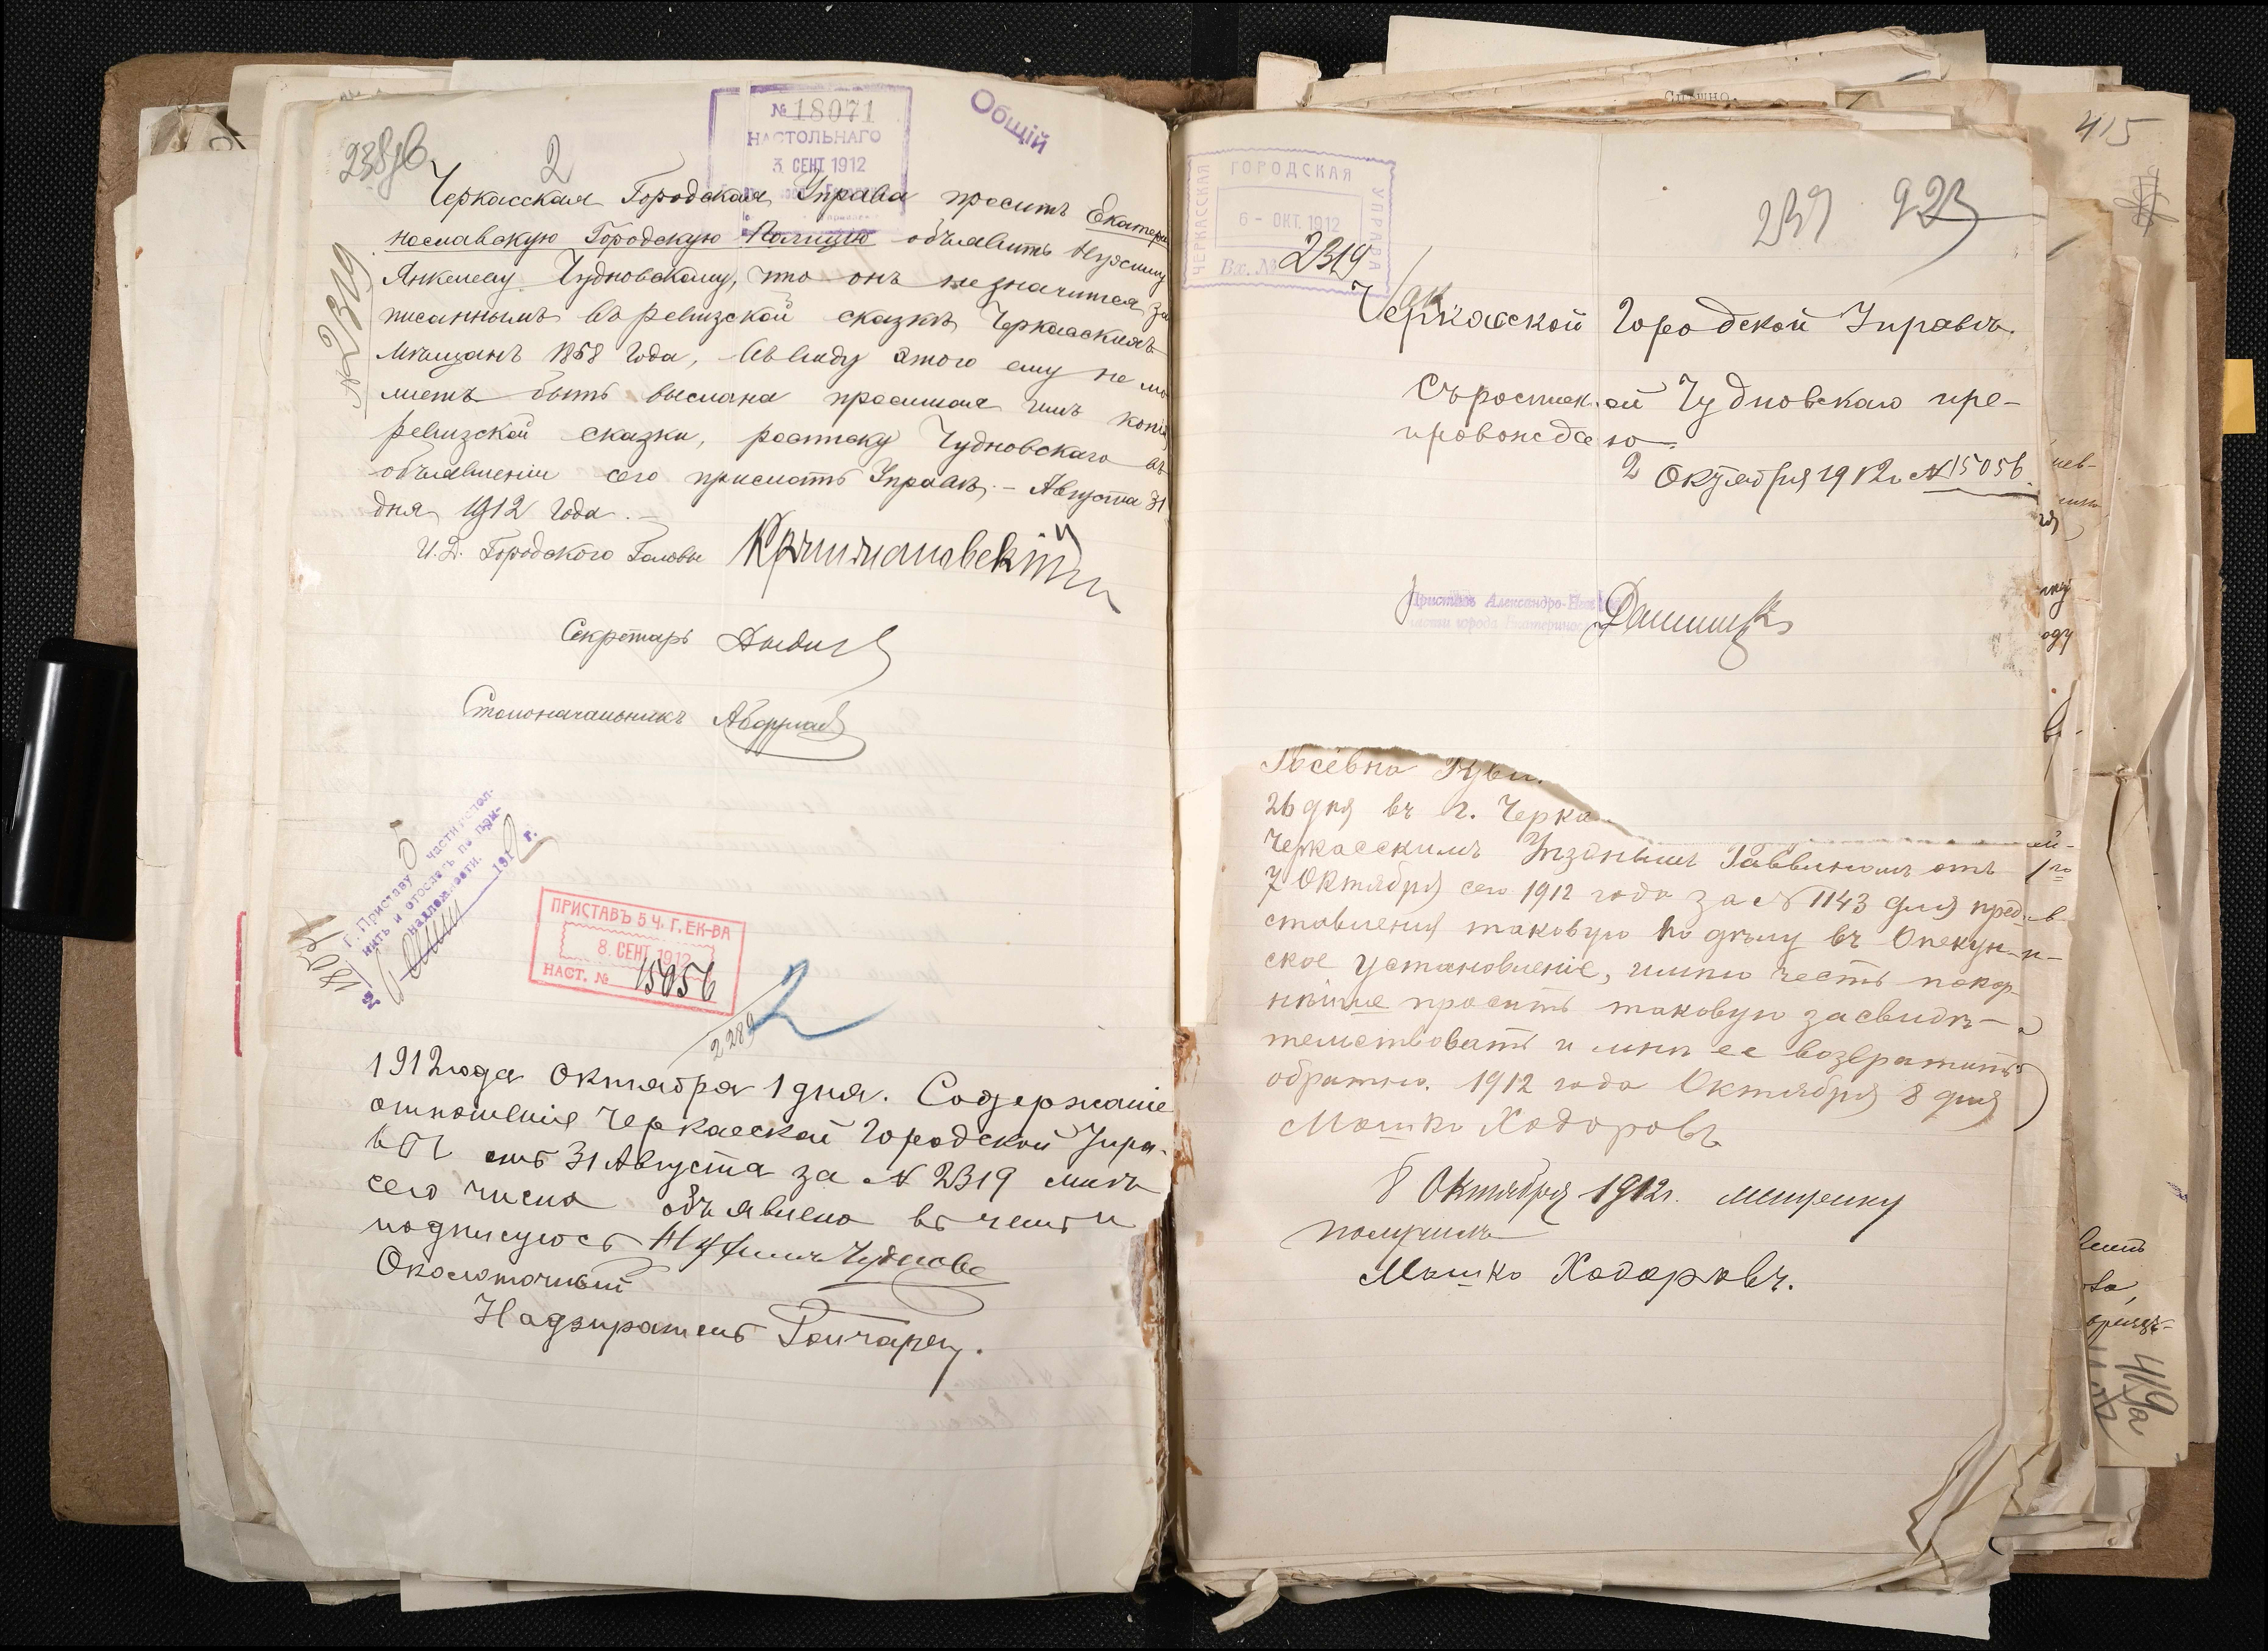 238 об
2
№ 18071
НАСТОЛЬНАГО
3 СЕНТ 1912
Общій
Черкасская Городская Управа проситъ Екатери
нославскую Городскую Полицію объявить Нухиму
Янкелеву Чудновскому, что онъ не значится за
писаннымъ въ ревизской сказкѣ Черкасскихъ
мѣщанъ 1858 года, въ виду этого ему не мо
жетъ быть выслана просимая имъ копія
ревизской сказки, росписку Чудновскаго въ
объявленіи сего прислать Управѣ. – Августа 31
дня 1912 года. –
№ 2319
И. Д. Городского Головы
Секретарь
Столоначальникъ
Г. Приставу 5 части испол-
нить и отослать по при-
надлежности.
191 2 г.
18071
ПРИСТАВЪ 5 Ч. Г. ЕК-ВА
8. СЕНТ 1912
НАСТ. № 15056
2
2289
1912 года октября 1 дня. Содержаніе
отношенія Черкасской Городской Упра-
вы отъ 31 Августа за № 2319 мнѣ
сего числа объявлено въ чемъ и
подписуюсь Нухимъ Чудновс
Околоточный
Надзиратель Гончарец.
Спѣшно.
415
ЧЕРКАССКАЯ ГОРОДСКАЯ УПРАВА
6 - ОКТ. 1912
Вх. № 2319
239 923
Черкасской Городской Управѣ.
Съ роспиской Чудновскаго пре-
провождаю.
2 Октября 1912 г. № 15056.
Приставъ Александро-Нев
части города Екатеринос
Іосевна
26 дня въ г. Черка
Черкасскимъ Уѣзднымъ Раввиномъ отъ
7 Октября сего 1912 года за № 1143 для пред-
ставленія таковую по дѣлу въ Опекун-
ское установленіе, имѣю честь покор-
нѣйше просить таковую засвидѣ-
тельствовать и мнѣ ее возвратить
обратно. 1912 года Октября 8 дня
Мошко Ходоровъ
8 Октября 1912 г. метрику
получилъ
Мошко Ходоровъ.
419а